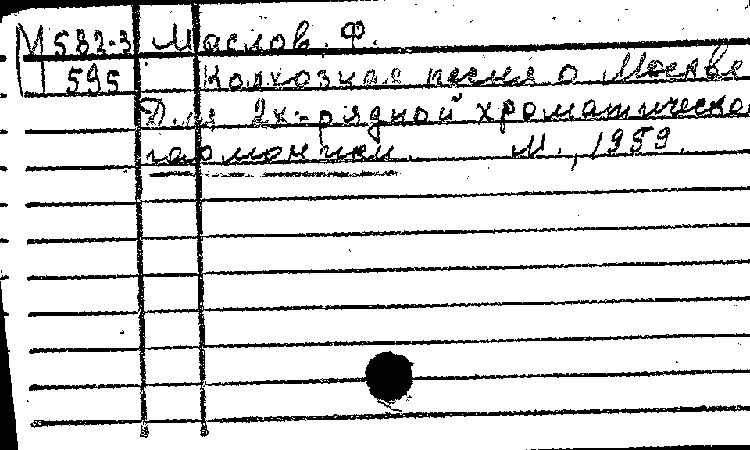 М 583-3 Маслов, Ф.
595 Колхозная песня о Москве
Для 2х-рядной хроматическо
гармоники. М., 1959.